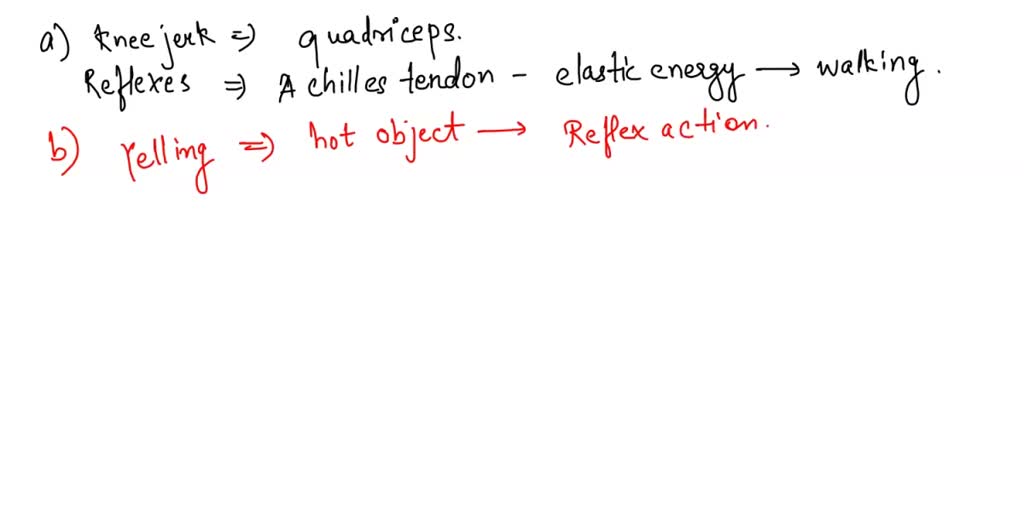 a) Knee jerk => quadriceps.
Reflexes => Achilles tendon - elastic energy → walking.
b) Yelling => hot object → Reflex action.